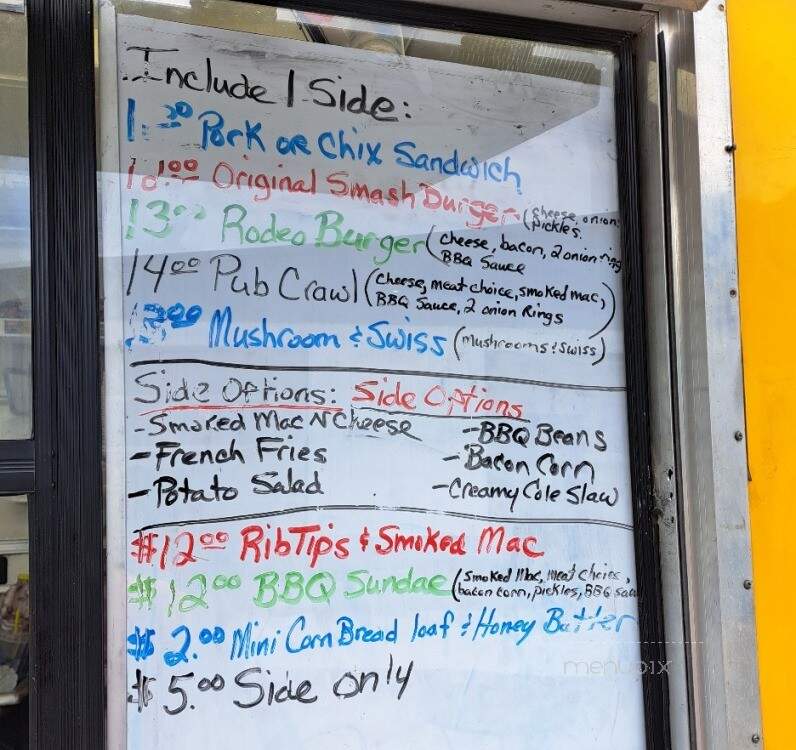 Include 1 Side:
Pork or Chix Sandwich
Original Smash Burger (cheese, onion,
pickles.
13.00 Rodeo Burger (cheese, bacon, 2 onion rings
BBQ Sauce
14.00 Pub Crawl (cheese, meat choice, smoked mac,
BBQ Sauce, 2 onion Rings)
Mushroom & Swiss (mushrooms & swiss)
Side Options: Side Options
- Smoked Mac N Cheese
- BBQ Beans
- French Fries
- Bacon Corn
- Potato Salad
- Creamy Cole Slaw
$12.00 Rib Tips & Smoked Mac
$12.00 BBQ Sundae (Smoked Mac, meat choice,
bacon corn, pickles, BBQ sau
$2.00 Mini Corn Bread loaf & Honey Butter
$5.00 Side only
menupix